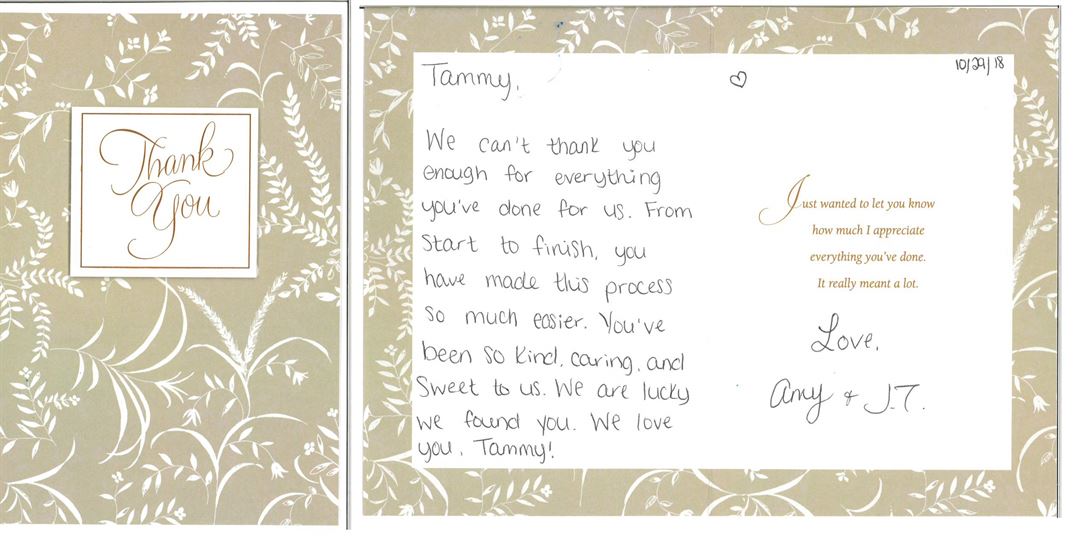 Thank
You
Tammy,
10/29/18
We can't thank you
enough for everything
you've done for us. From
start to finish, you
have made this process
so much easier. You've
been so kind, caring, and
sweet to us. We are lucky
we found you. We love
you, Tammy!
Just wanted to let you know
how much I appreciate
everything you've done.
It really meant a lot.
Love,
Amy & J.T.